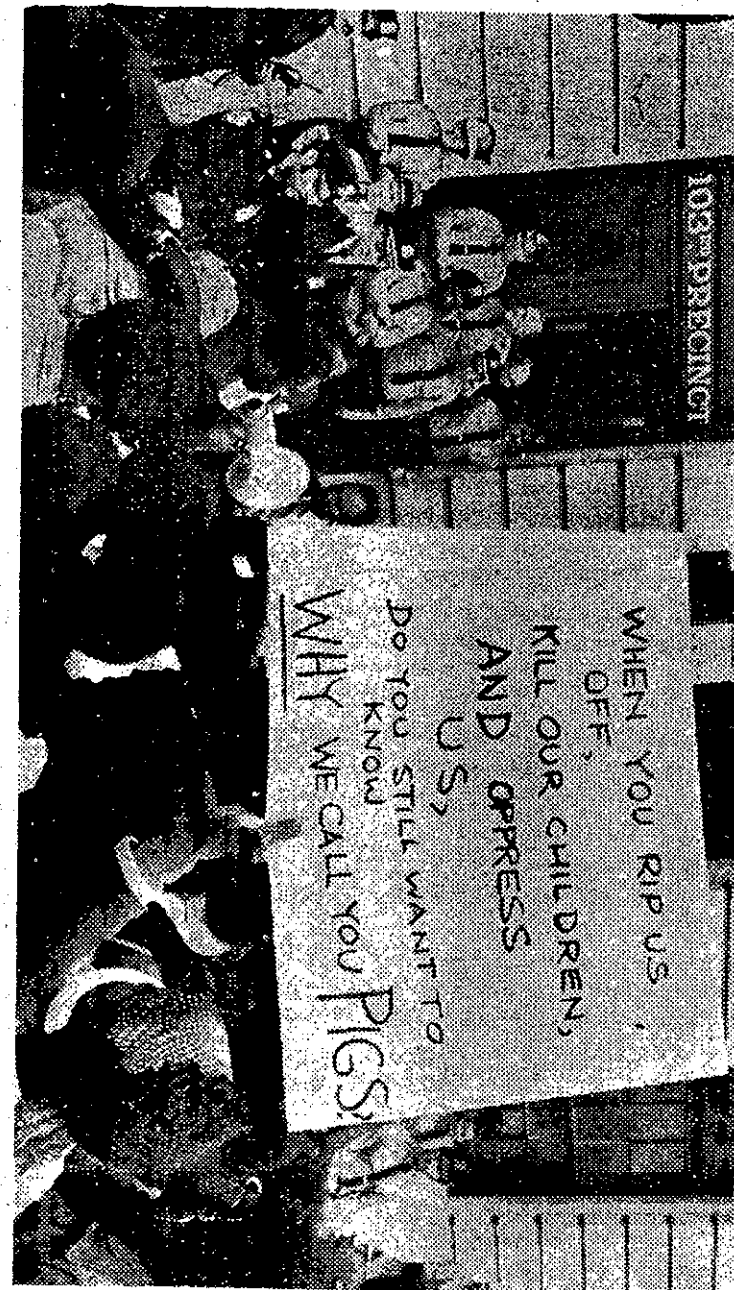 103RD PRECINCT
WHEN YOU RIP US
OFF,
KILL OUR CHILDREN,
AND OPPRESS
US,
DO YOU STILL WANT TO
KNOW
WHY WE CALL YOU PIGS?